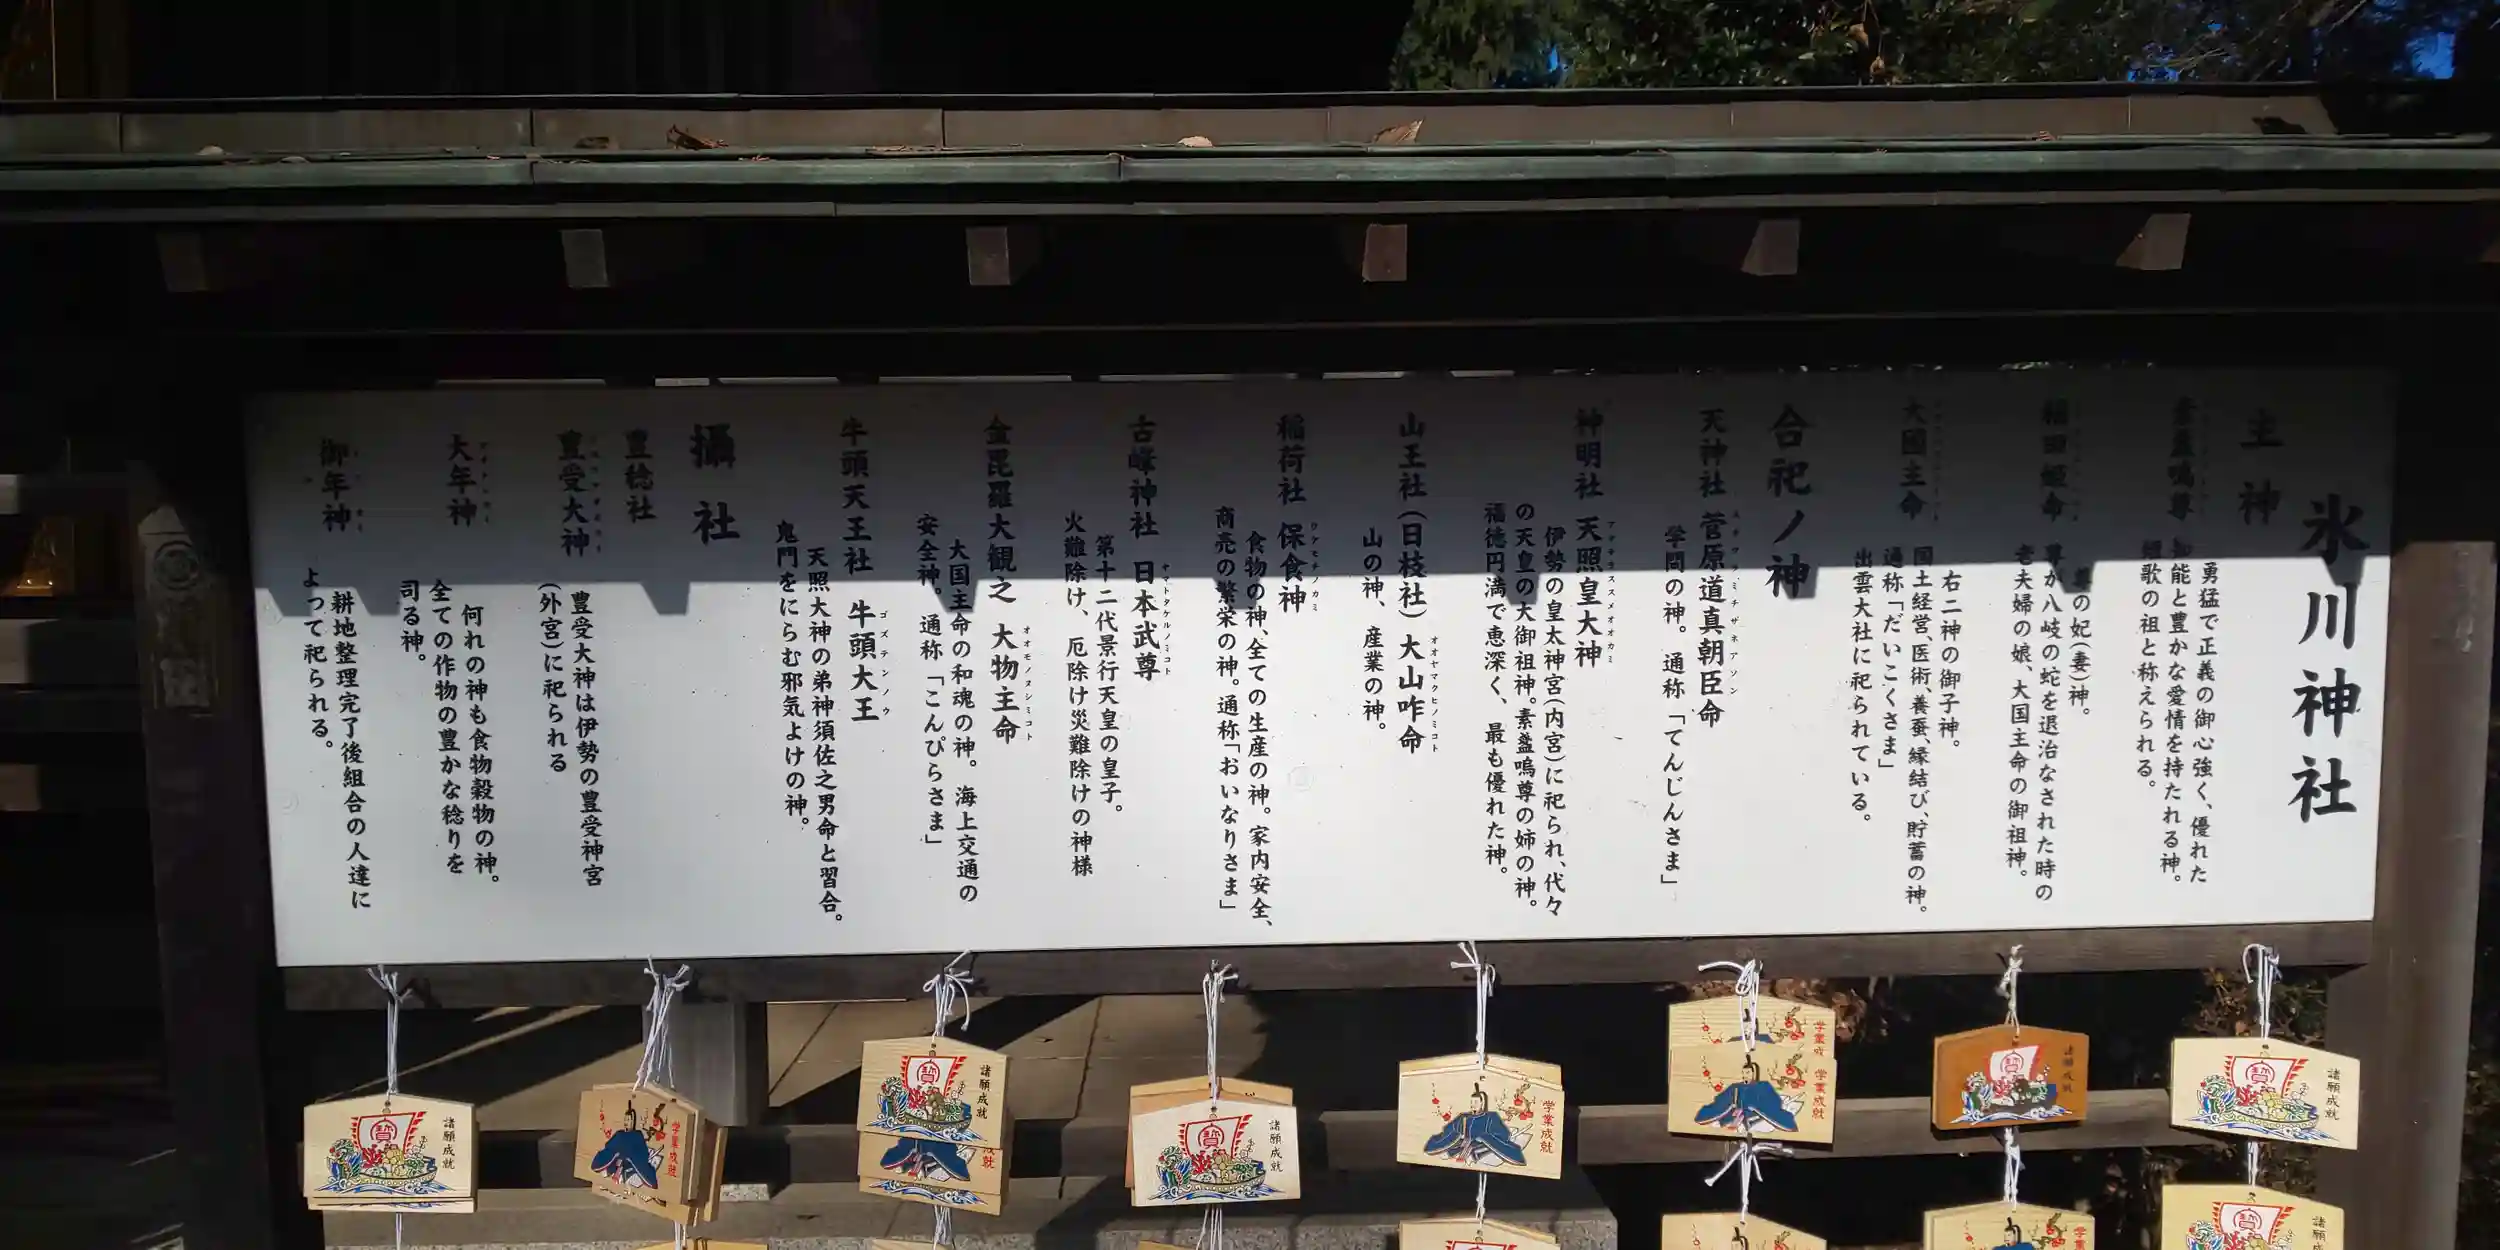 氷川神社
主神
素盞嗚尊
勇猛で正義の御心強く、優れた
御能と豊かな愛情を持たれる神。
短歌の祖と称えられる。
稲田姫命
尊の妃(妻)神。
尊が八岐の蛇を退治なされた時の
老夫婦の娘、大国主命の御祖神。
大國主命
右二神の御子神。
国土経営、医術、養蚕、縁結び、貯蓄の神。
通称「だいこくさま」
出雲大社に祀られている。
合祀ノ神
天神社 菅原道真朝臣命
スガワラミチザネアソン
学問の神。通称「てんじんさま」
神明社 天照皇大神
アマテラススメオオカミ
伊勢の皇太神宮(内宮)に祀られ、代々
の天皇の大御祖神。素盞嗚尊の姉の神。
福徳円満で恵深く、最も優れた神。
山王社(日枝社) 大山咋命
オオヤマクヒノミコト
山の神、産業の神。
稲荷社 保食神
ウケモチノカミ
食物の神、全ての生産の神。家内安全、
商売の繁栄の神。通称「おいなりさま」
古峰神社 日本武尊
ヤマトタケルノミコト
第十二代景行天皇の皇子。
火難除け、厄除け災難除けの神様
金毘羅大観之 大物主命
オオモノヌシミコト
大国主命の和魂の神。海上交通の
安全神。通称「こんぴらさま」
牛頭天王社 牛頭大王
ゴズテンノウ
天照大神の弟神須佐之男命と習合。
鬼門をにらむ邪気よけの神。
攝社
豊稔社
豊受大神
豊受大神は伊勢の豊受神宮
(外宮)に祀られる
大年神
何れの神も食物穀物の神。
全ての作物の豊かな稔りを
司る神。
御年神
耕地整理完了後組合の人達に
よって祀られる。
諸願成就
学業成就
諸願成就
成就
諸願成就
学業成就
学業成
学業成就
諸願成就
諸願成就
諸願成